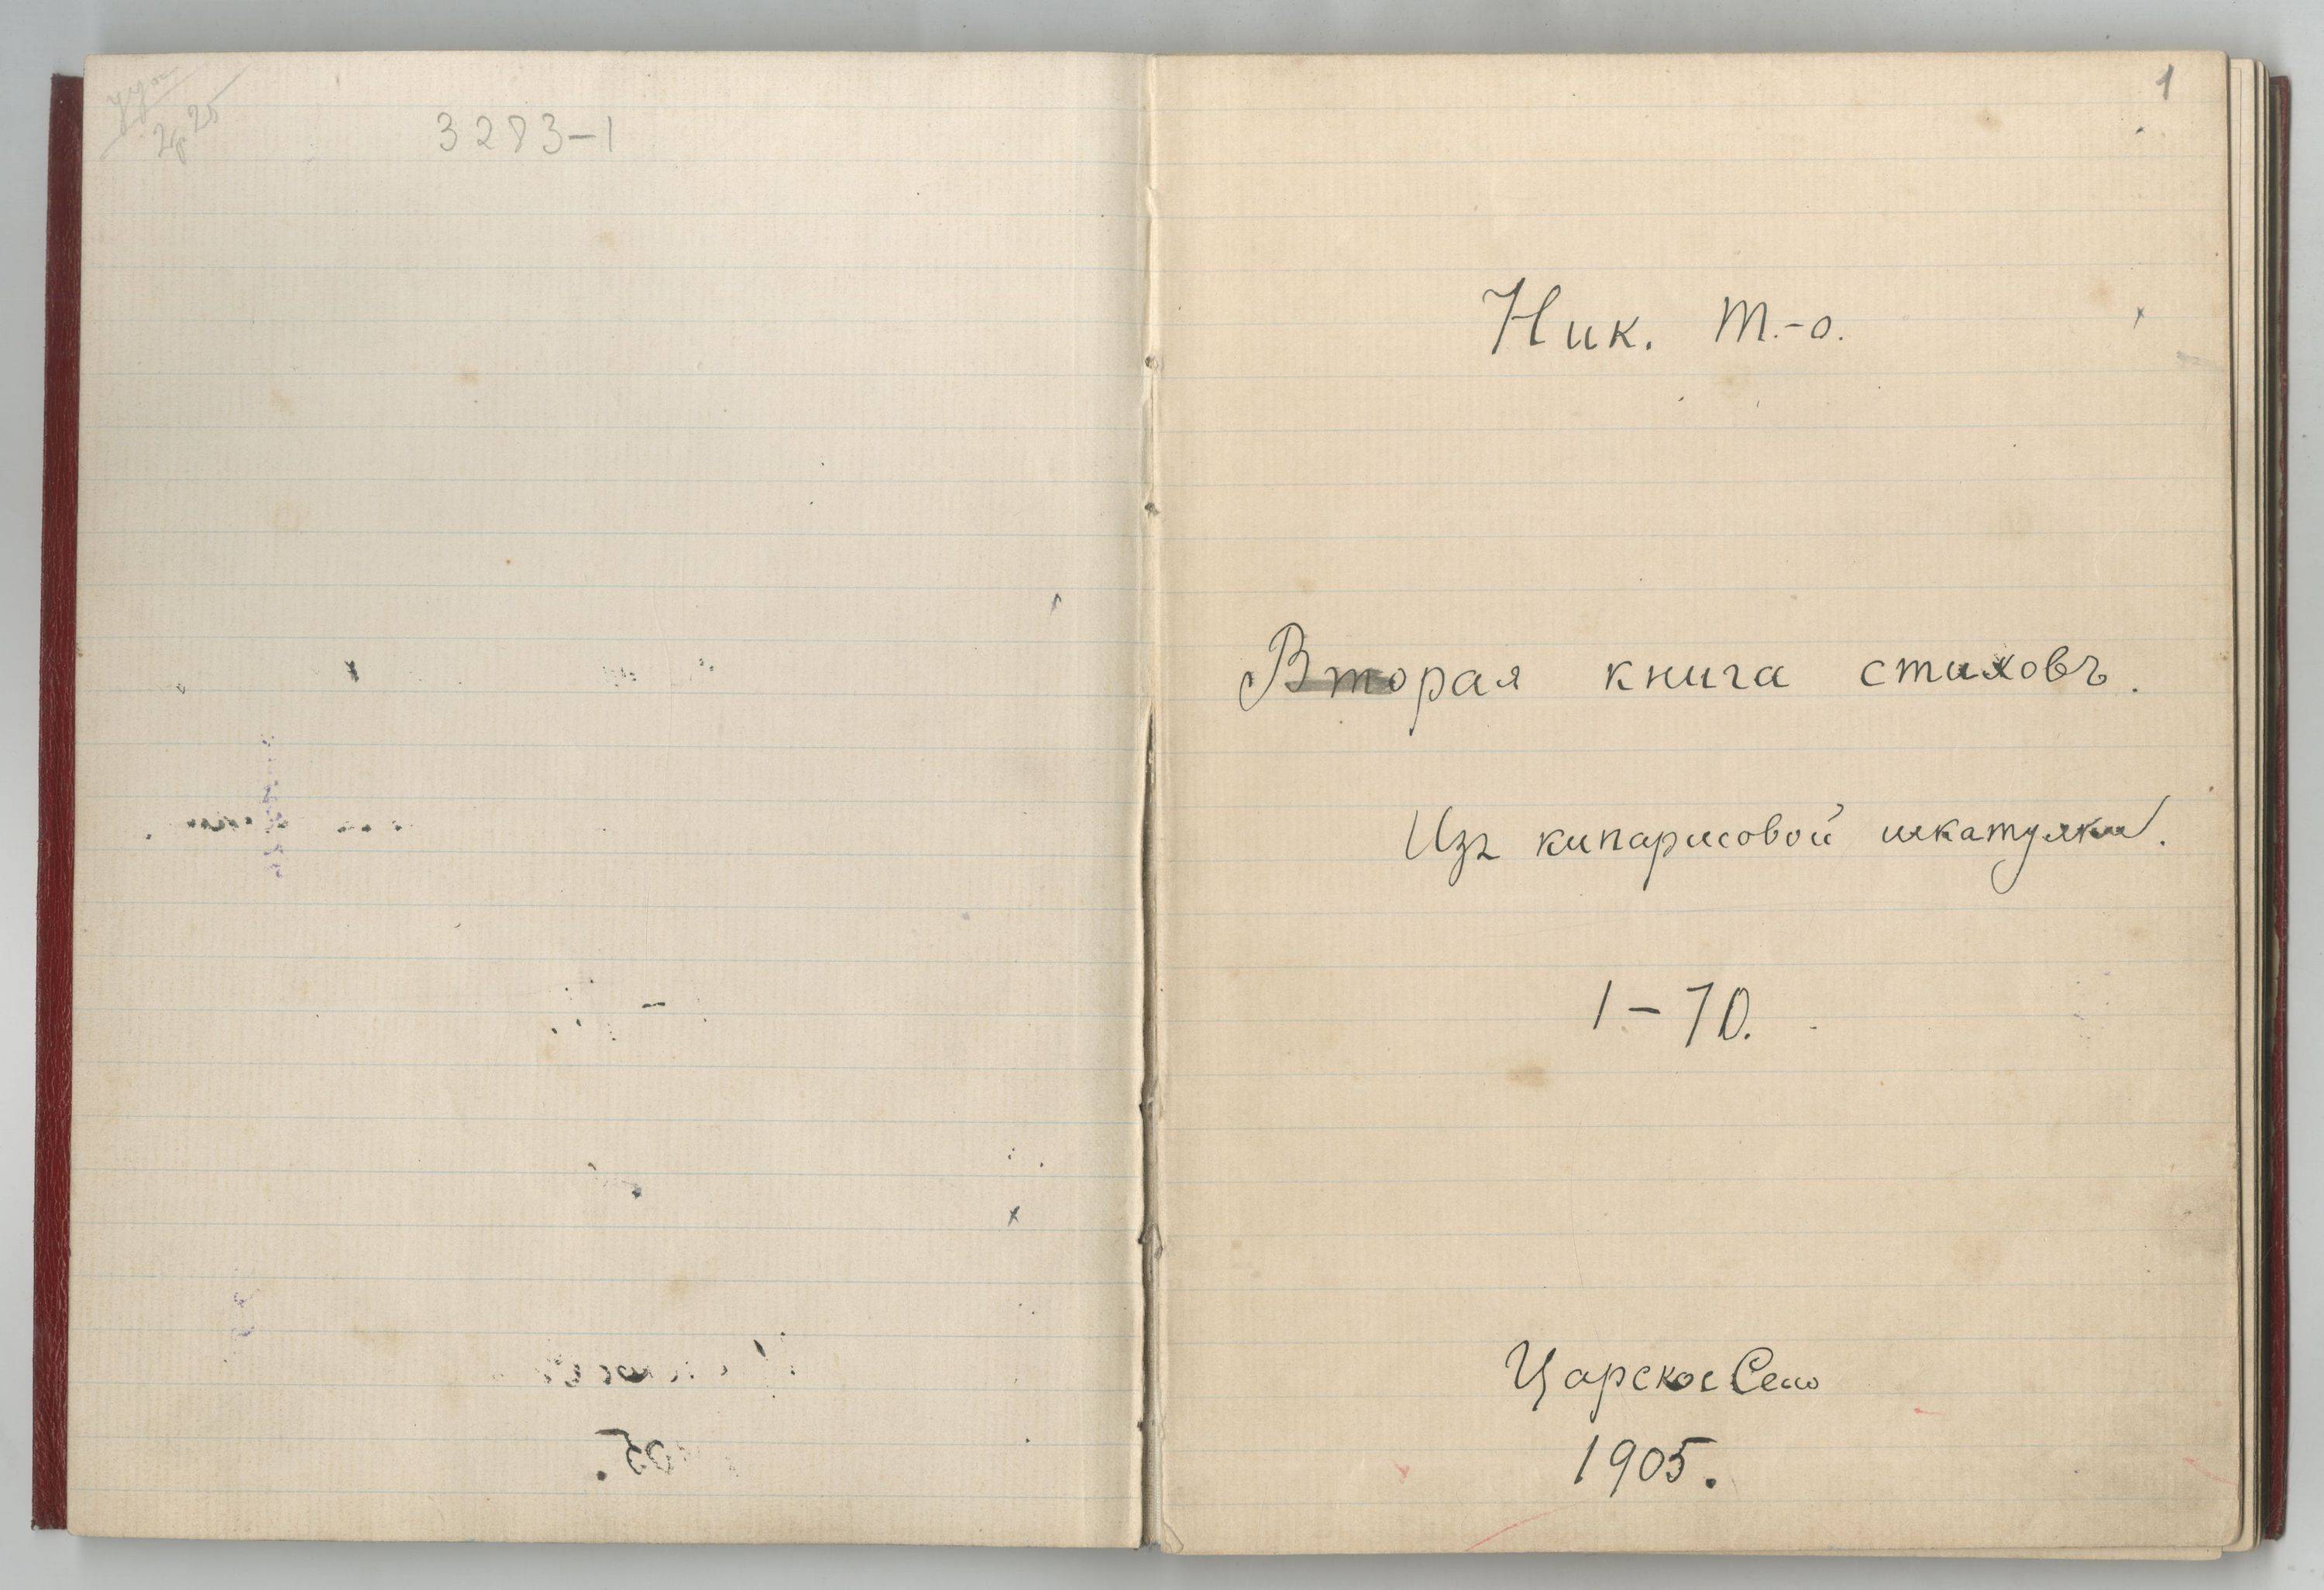 3283-1
1
Ник. Т.-о.
Вторая книга стиховъ.
Изъ кипарисовой шкатулки.
1-70.
Царское Село
1905.